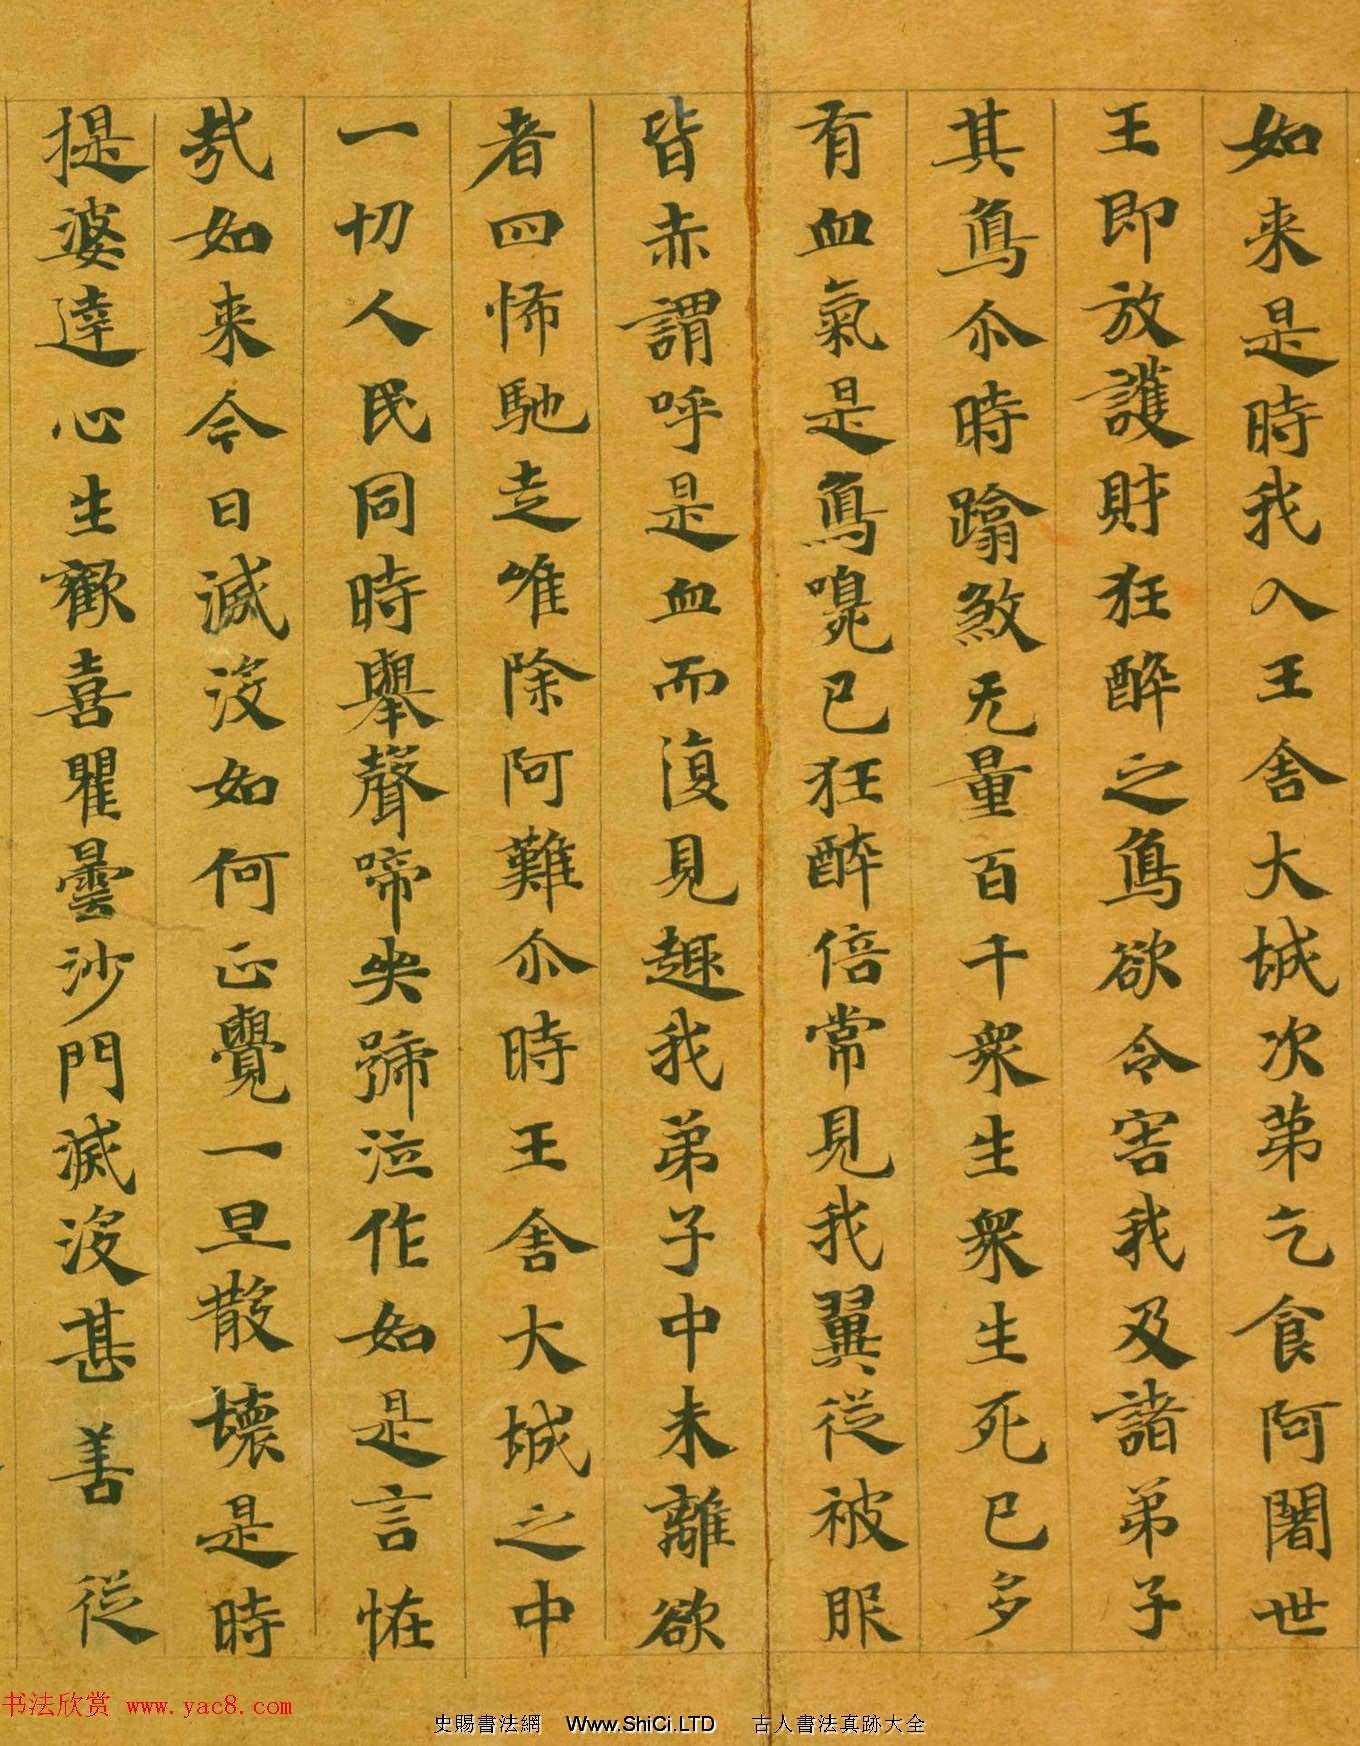 如来是時我入王舍大城次苐乞食阿闍世
王即放護財狂醉之鳥欲令害我及諸弟子
其鳥尒時蹹煞无量百千衆生衆生死已多
有血氣是鳥嗅已狂醉倍常見我翼從被服
皆赤謂呼是血而復見趣我弟子中未離欲
者四怖馳走唯除阿難尒時王舍大城之中
一切人民同時舉聲啼哭號泣作如是言恠
㢤如来今日滅没如何正覺一旦散壞是時
提婆達心生歡喜瞿曇沙門滅没甚善從
书法欣赏 www.yac8.com
史賜書法網 Www.ShiCi.LTD 古人書法真跡大全